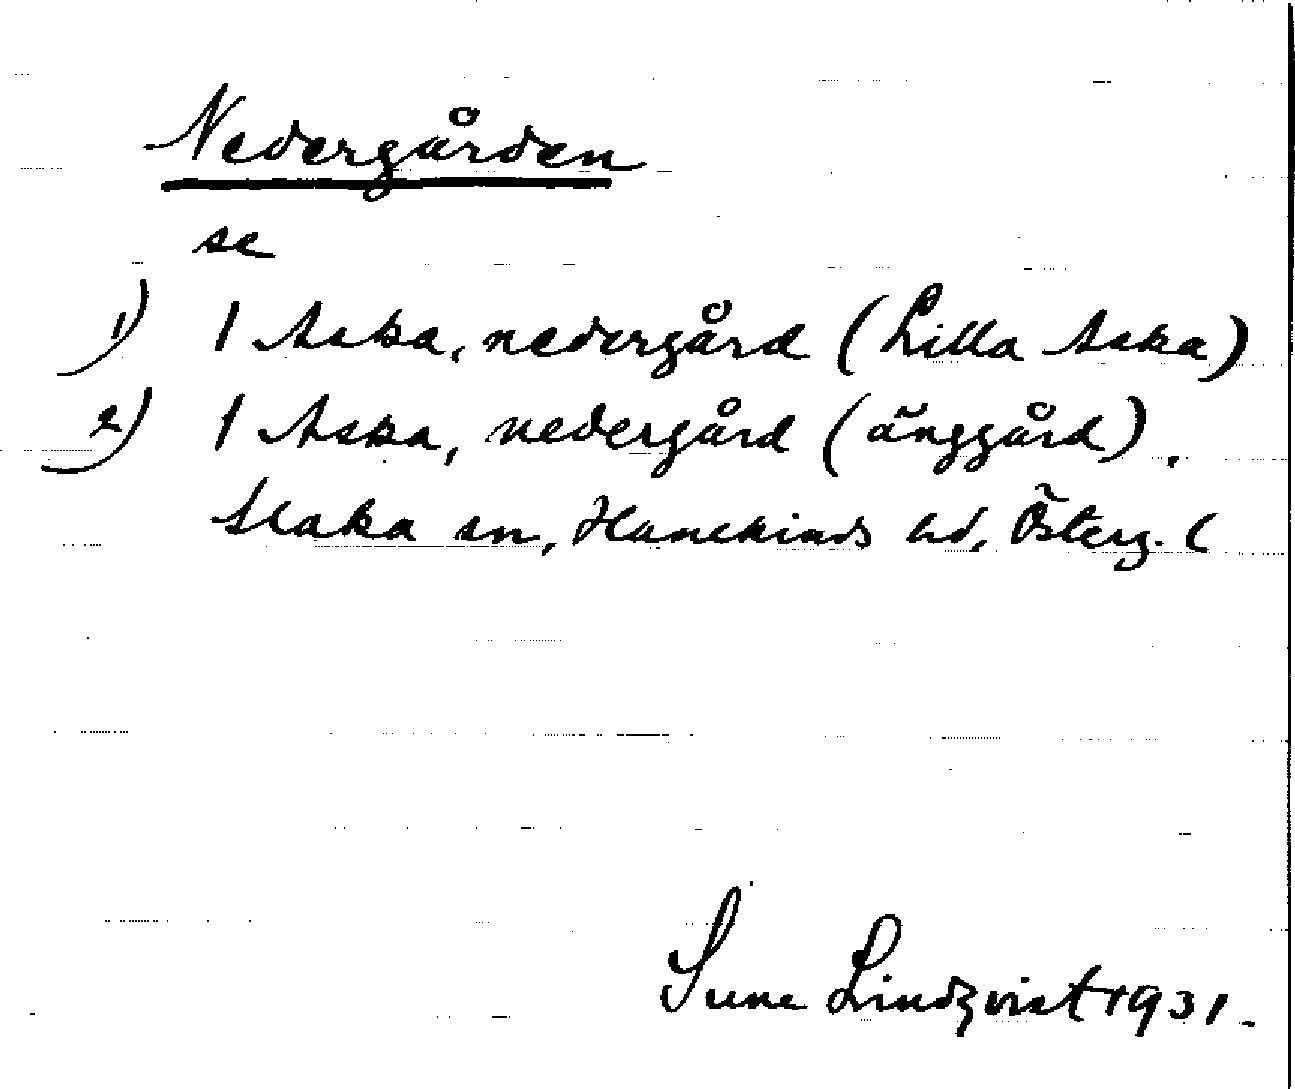 Nedergården
se
1) 1 Aska, nedergård (Lilla Aska)
2) 1 Aska, nedergård (änggård).
Slaka sn, Hanekinds hd, Österg. l
Sune Lindqvist 1931.